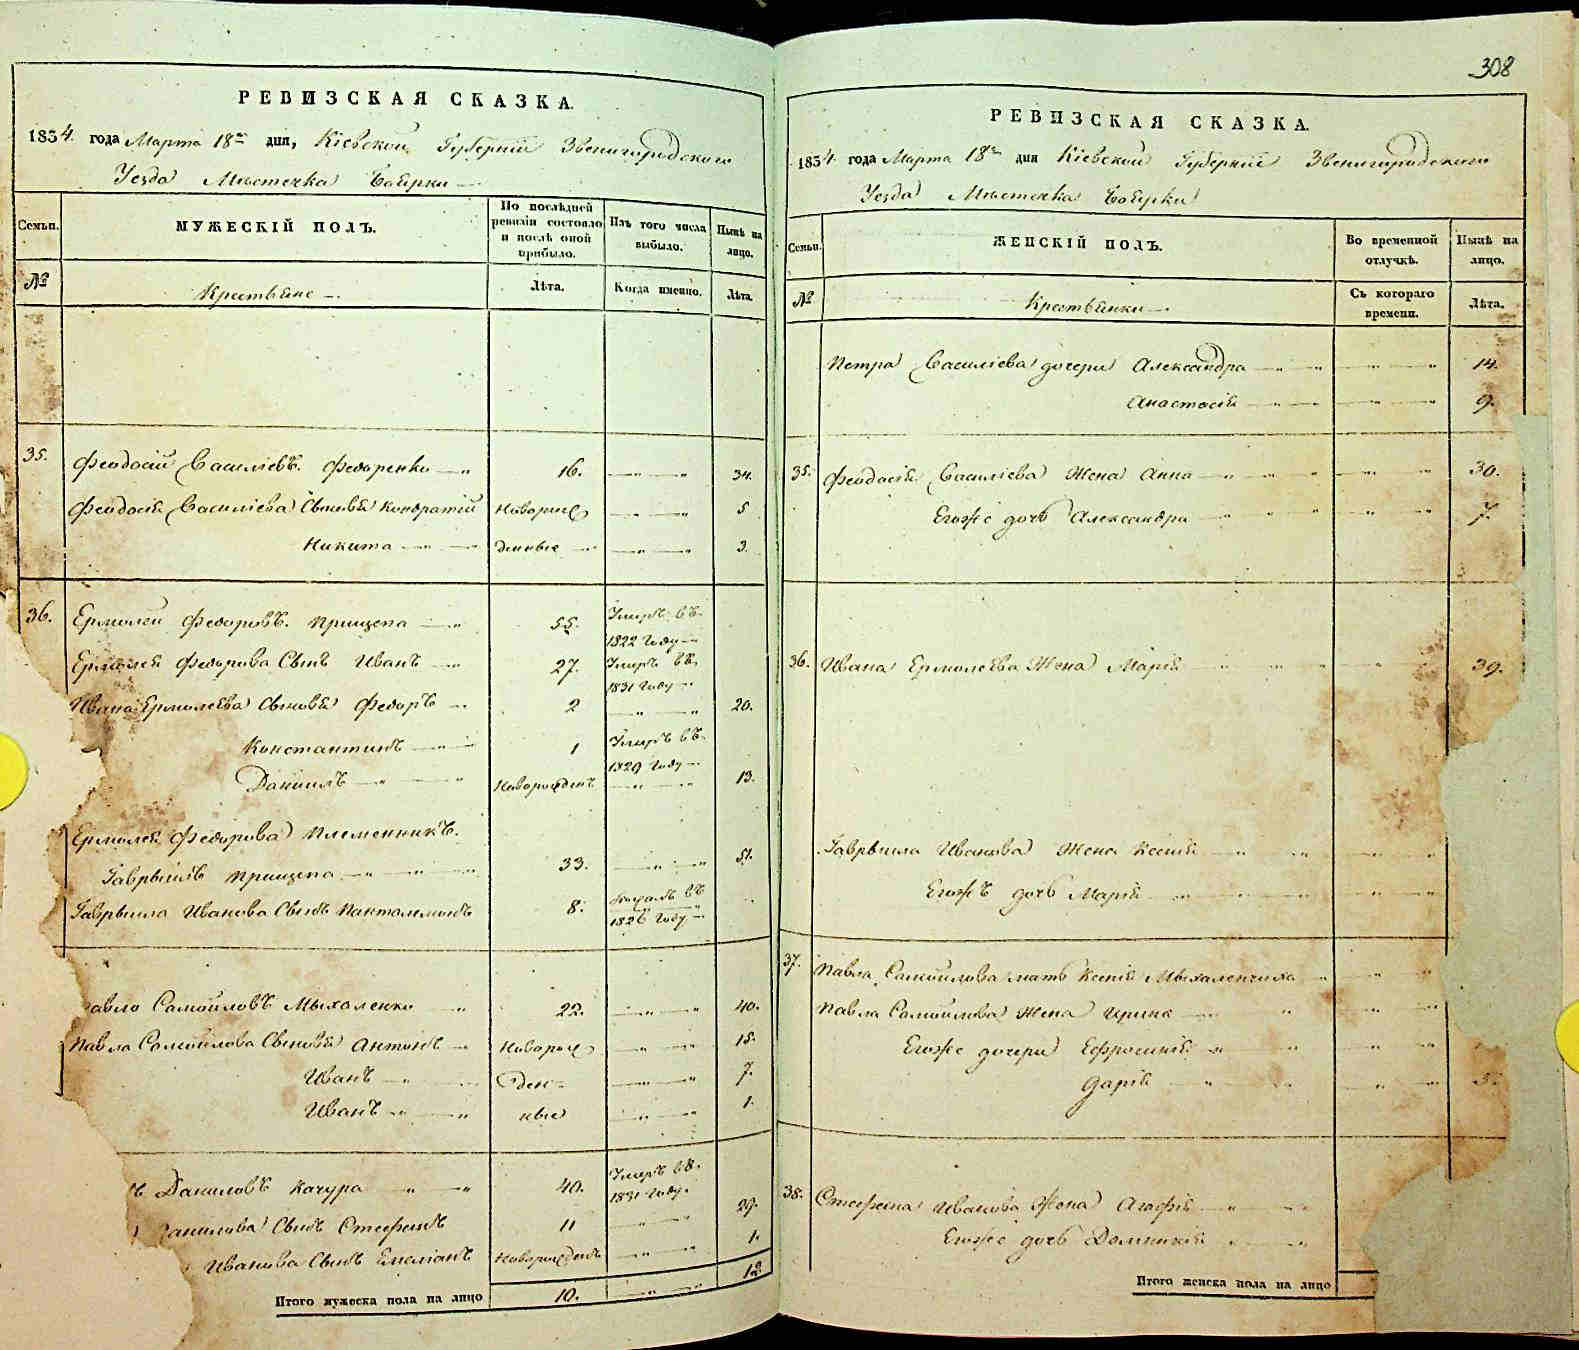 308
РЕВИЗСКАЯ СКАЗКА.
1834. года Марта 18го дня, Кіевской Губерніи Звенигородского
Уезда Мѣстечка Боярки
Семьи.
МУЖЕСКІЙ ПОЛЪ.
По послѣдней ревизіи состояло и послѣ оной прибыло.
Изъ того числа выбыло.
Нынѣ на лицо.
№
Крестьяне
Лѣта.
Когда именно.
Лѣта.
35. Феодосій Василіевъ. Федоренко 16. 34.
Феодосія Василіева Сыновья Кондратій Новорож 5
Никита денные 3.
36. Ермолей Федоровъ. Прищепа 55. Умеръ въ 1822 Году
Ермолея Федорова Сынъ Иванъ 27. Умеръ въ 1831 Году
Ивана Ермолаева Сыновья Федоръ 2 20.
Константинъ 1 Умеръ въ 1829 Году
Даніилъ Новорожденъ 13.
Ермолея Федорова Племенникъ.
Гаврыилъ Прищепа 33. 51.
Гаврыила Иванова Сынъ Панталимонъ 8. въ 1826 Году
авло Самойловъ Мыхаленко 22. 40.
Павла Самойлова Сыновья Антонъ Новорож 15.
Иванъ ден- 7.
Иванъ ные 1.
ъ Даниловъ Качура 40. Умеръ въ. 1831 Году.
Данилова Сынъ Стефанъ 11 29.
Иванова Сынъ Емеліанъ Новорожденъ 1.
Итого мужеска пола на лицо 10. 12.
РЕВИЗСКАЯ СКАЗКА.
1834 года Марта 18го дня Кіевской Губерніи Звенигородского
Уезда Мѣстечка Боярки
Семьи.
ЖЕНСКІЙ ПОЛЪ.
Во временной отлучкѣ.
Нынѣ на лицо.
№
Крестьянки
Съ котораго времени.
Лѣта.
Петра Василіева дочери Александра 14.
Анастасія 9.
35. Феодосія Василіева Жена Анна 30.
Егоже дочь Александра 7.
36. Ивана Ермолаева Жена Марія 39.
Гаврыила Иванова Жена Ксенія
Егожъ дочь Марія
37. Павла Самойлова мать Ксенія Мыхаленчиха
Павла Самойлова Жена Ирина
Егоже дочери Ефросинія
Дарія 5.
38. Стефана Иванова Жена Агафія
Егоже дочь Домникія
Итого женска пола на лицо